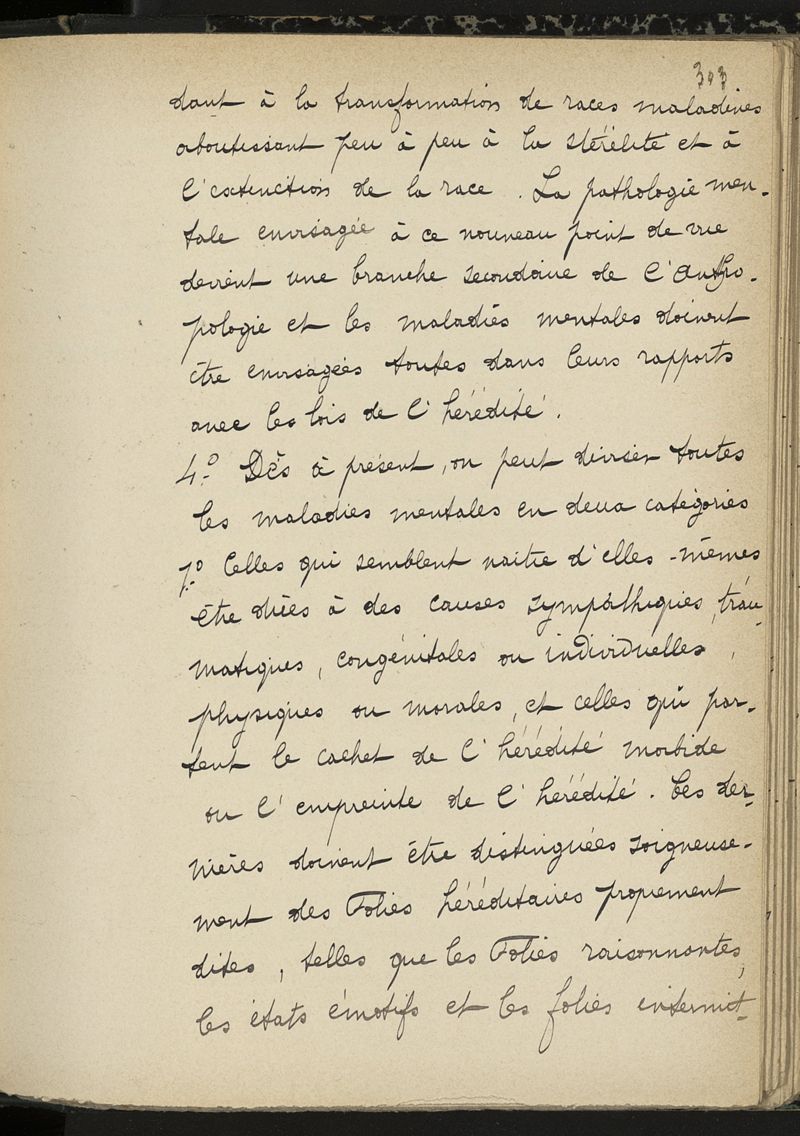 303
dant à la transformation de races maladives
aboutissant peu à peu à la stérélité et à
l'extinction de la race. La pathologie men-
tale envisagée à ce nouveau point de vue
devient une branche secondaire de l'Anthro-
pologie et les maladies mentales doivent
être envisagées toutes dans leurs rapports
avec les lois de l'hérédité.
4.º Dès à présent, on peut diviser toutes
les maladies mentales en deux catégories
1.º Celles qui semblent naitre d'elles-mêmes
être dûes à des causes sympathiques, trau-
matiques, congénitales ou individuelles,
physiques ou morales, et celles qui por-
tent le cachet de l'hérédité morbide
ou l'empreinte de l'hérédité. Ces der-
nières doivent être distinguées soigneuse-
ment des Folies héréditaires proprement
dites, telles que les Folies raisonnantes,
les états émotifs et les folies intermit-